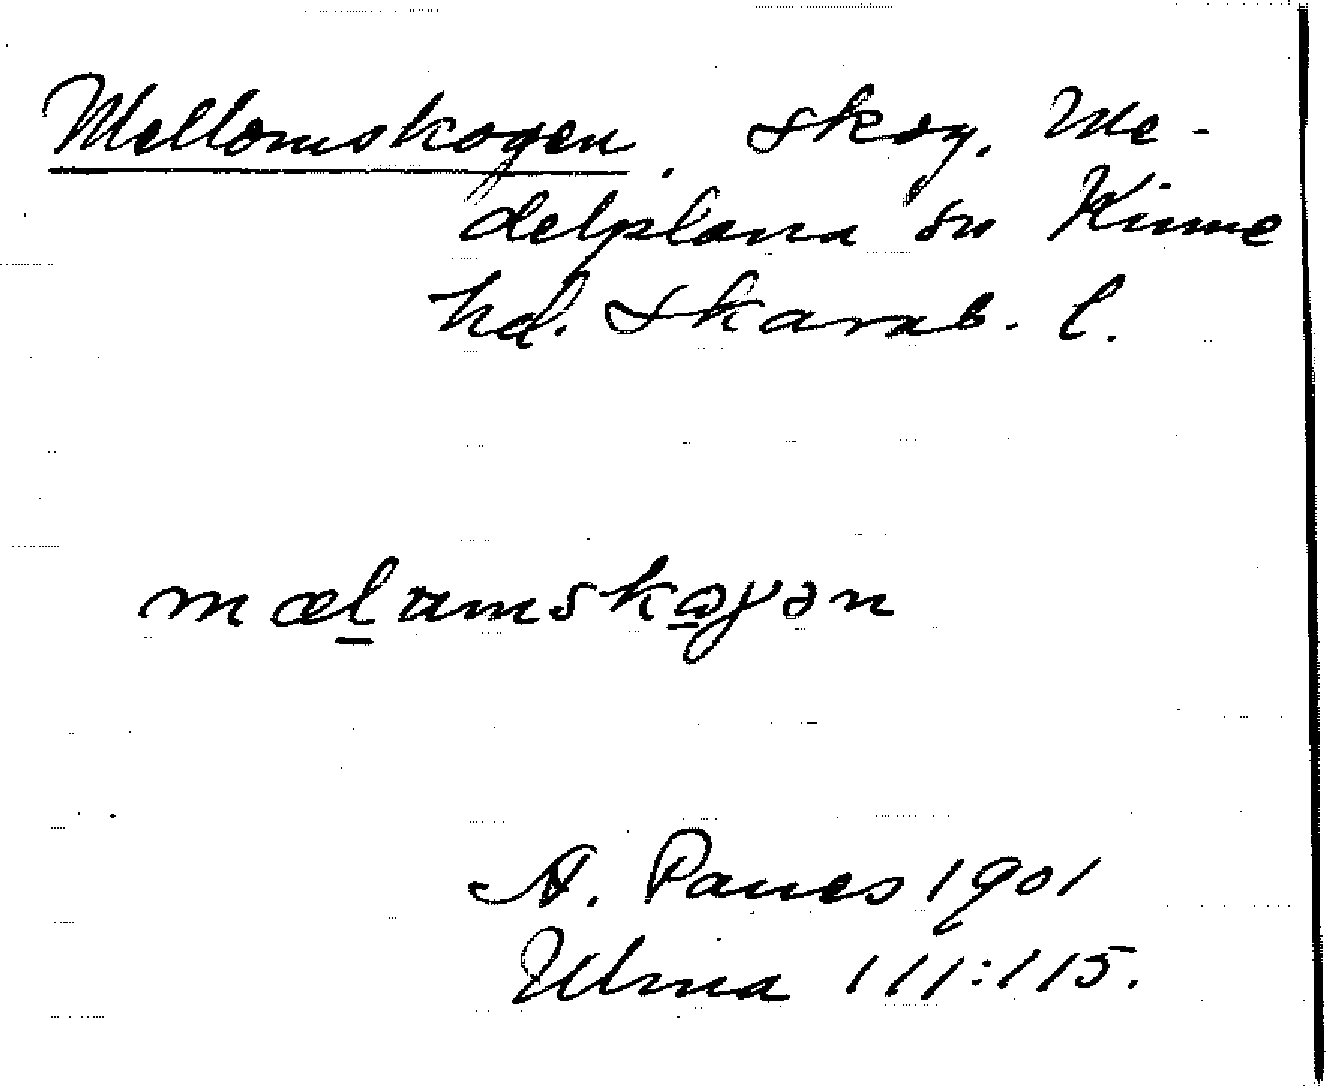 Mellomskogen. skog. Me-
delplana sn Kinne
hd. Skarab. l.
mælamskoɣən
A. Panes 1901
Ulma 111:115.